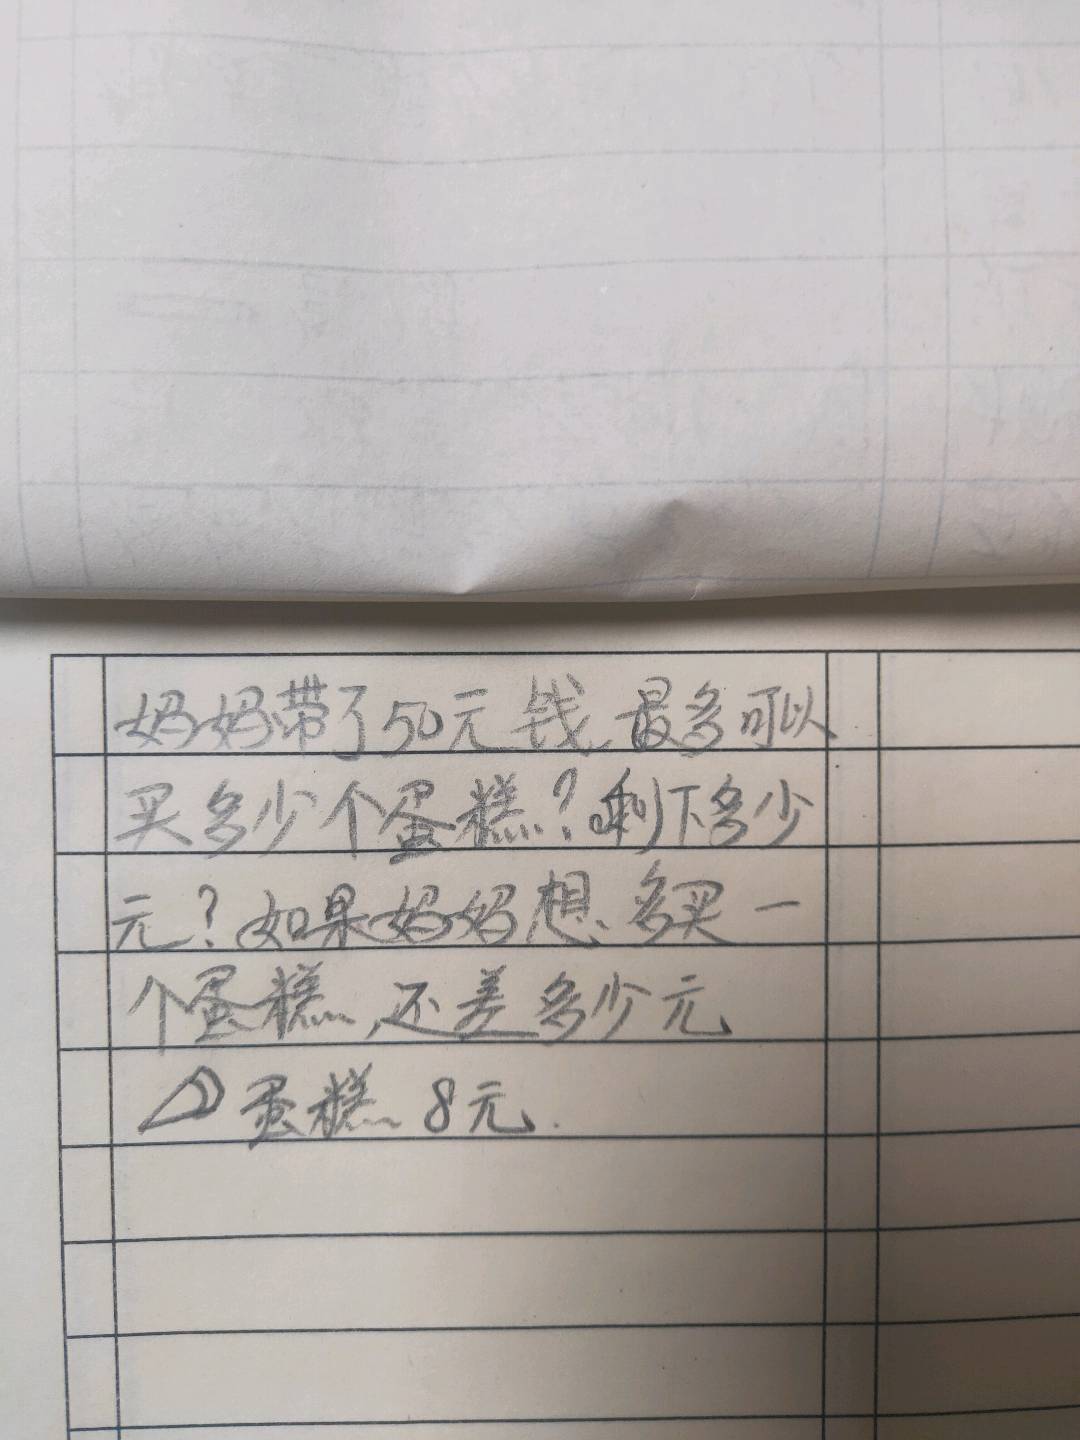 妈妈带了50元钱,最多可以
买多少个蛋糕?剩下多少
元?如果妈妈想多买一
个蛋糕,还差多少元
蛋糕8元.